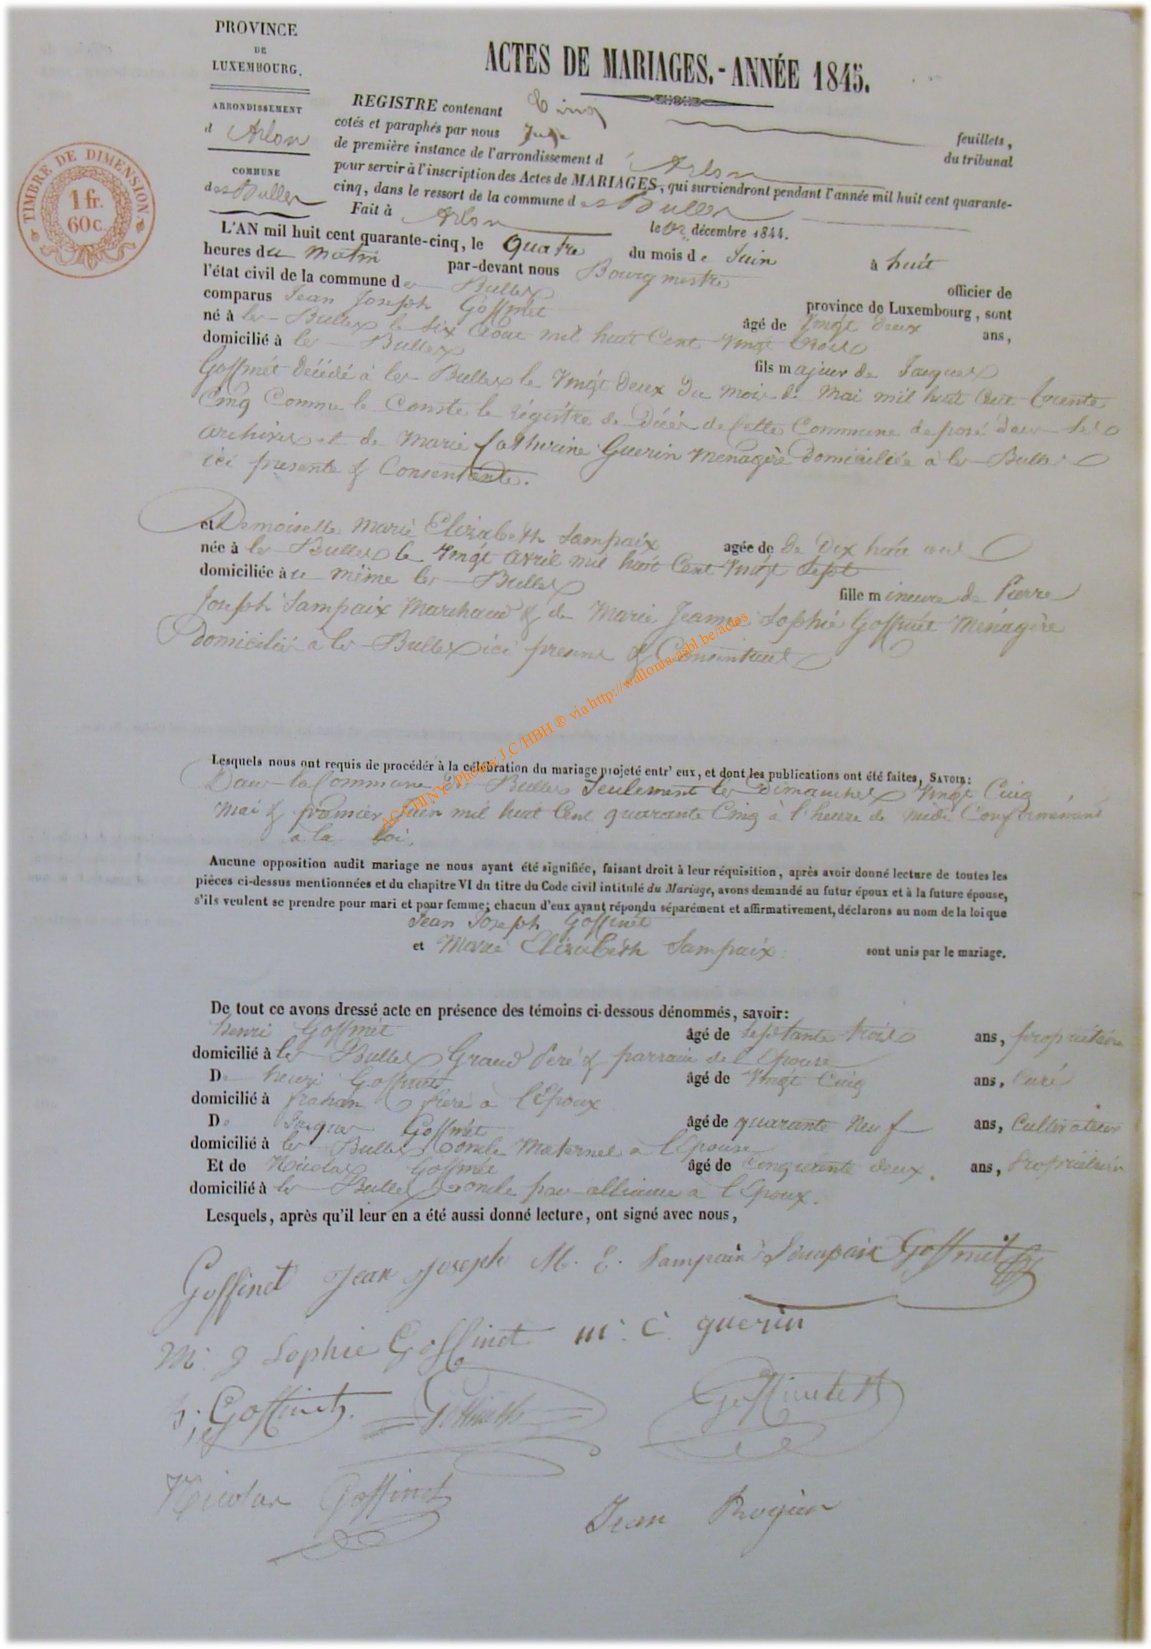 PROVINCE
DE
LUXEMBOURG.
ARRONDISSEMENT
d Arlon
COMMUNE
des Bulles
TIMBRE DE DIMENSION
1 fr.
60 c.
ACTES DE MARIAGES.-ANNÉE 1845.
REGISTRE contenant Cinq feuillets,
cotés et paraphés par nous Juge du tribunal
de première instance de l'arrondissement d Arlon
pour servir à l'inscription des Actes de MARIAGES, qui surviendront pendant l'année mil huit cent quarante-
cinq, dans le ressort de la commune d es Bulles
Fait à Arlon le décembre 1844.
L'AN mil huit cent quarante-cinq, le quatre du mois de Juin à huit
heures du matin par-devant nous Bourgmestre officier de
l'état civil de la commune de Bulles province de Luxembourg, sont
comparus Jean Joseph Goffinet âgé de vingt deux ans,
né à les Bulles le six mil huit Cent vingt trois
domicilié à les Bulles fils majeur de Jacques
Goffinet Décédé à les Bulles le vingt deux du mois de Mai mil huit Cent trente
Cinq Comme le Conste le régistre de Décès de Cette Commune deposé dans les
archives et de Marie Catherine Guerin Menagère Domiciliée à les Bulles
ici presente & Consentante.
et Demoiselle Marie Elizabeth Sampaix agée de De Dix huit ans
née à les Bulles le vingt avril mil huit Cent vingt Sept
domiciliée à au même les Bulles fille mineure de Pierre
Joseph Sampaix Marchand & de Marie Jeanne Sophie Goffinet Ménagère
Domiciliés à les Bulles ici présens & Consentans
Lesquels nous ont requis de procéder à la célébration du mariage projeté entr' eux, et dont les publications ont été faites, SAVOIR:
Dans la Commune des Bulles Seulement les Dimanches vingt Cinq
Mai & premier Juin mil huit Cent quarante Cinq à l'heure de midi Conformément
à la loi.
Aucune opposition audit mariage ne nous ayant été signifiée, faisant droit à leur réquisition, après avoir donné lecture de toutes les
pièces ci-dessus mentionnées et du chapitre VI du titre du Code civil intitulé du Mariage, avons demandé au futur époux et à la future épouse,
s'ils veulent se prendre pour mari et pour femme; chacun d'eux ayant répondu séparément et affirmativement, déclarons au nom de la loi que
Jean Joseph Goffinet
et Marie Elizabeth Sampaix sont unis par le mariage.
De tout ce avons dressé acte en présence des témoins ci-dessous dénommés, savoir:
henri Goffinet âgé de septante trois ans, propriétaire
domicilié à les Bulles Grand Père & parrain de l'Epouse
De henri Goffinet âgé de vingt Cinq ans, Curé
domicilié à frahan frere à l'Epoux
De Jacques Goffinet âgé de quarante neuf ans, Cultivateur
domicilié à les Bulles oncle Maternel à l'Epouse
Et de Nicolas Goffinet âgé de Cinquante deux ans, Propriétaire
domicilié à les Bulles oncle par alliance à l'Epoux.
Lesquels, après qu'il leur en a été aussi donné lecture, ont signé avec nous,
Goffinet Jean Joseph M. E. Sampaix Sampaix Goffinet
M. J Sophie Goffinet m. C. guerin
h. Goffinet. Goffinet Goffinet
Nicolas Goffinet Jean Rogier
AC CHINY Photos J.C/HBH ® via http://wallonia-asbl.be/actes